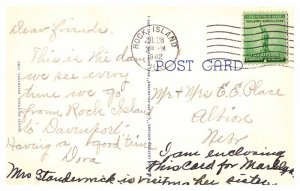 Dear friends.
This is the dam
we see every
time we go
from Rock Island
to Davenport.
Having a good time
Dora
ROCK ISLAND
JUL 28
1942
POST CARD
Mr + Mrs E E Place
Albion
Nebr
I am enclosing
this card for Marilyn
Mrs is visiting her sister